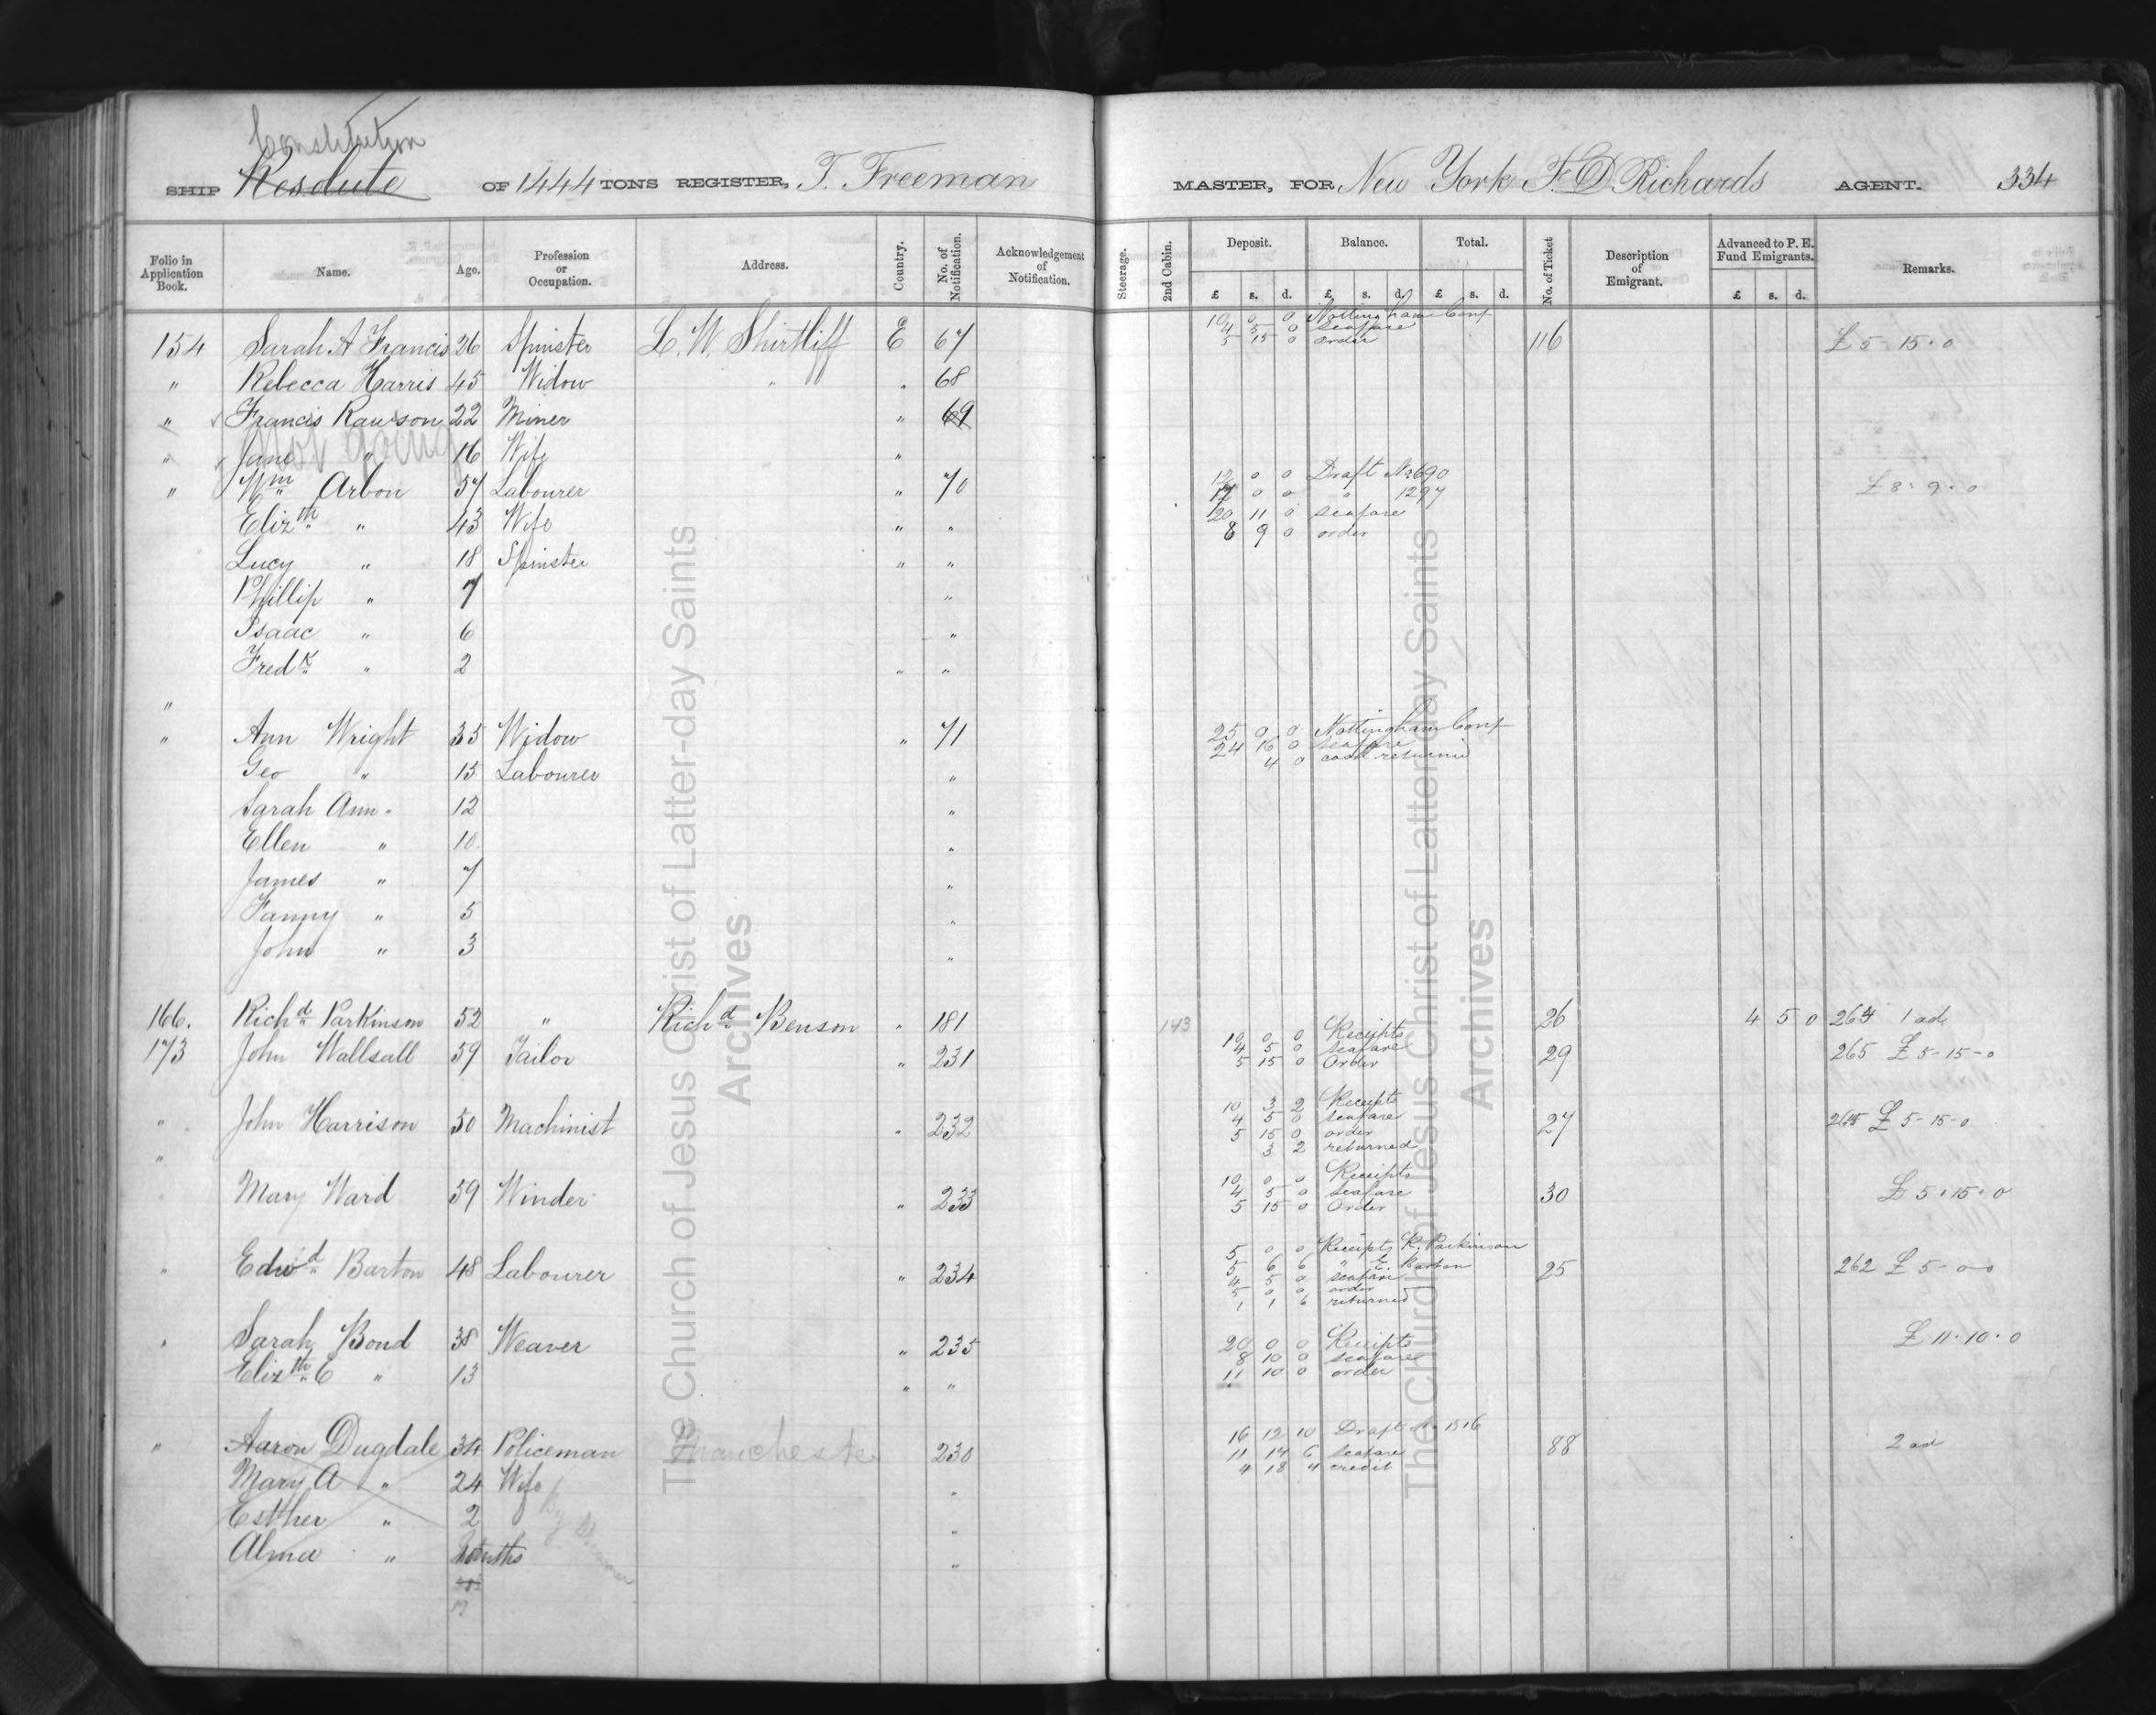 Constitution
SHIP Resolute OF 1444 TONS REGISTER, T. Freeman MASTER, FOR New York F D Richards AGENT. 334
Folio in Application Book. Name. Age. Profession or Occupation. Address. Country. No. of Notification. Acknowledgement of Notification. Steerage. 2nd Cabin. Deposit. £ s. d. Balance. £ s. d. Total. £ s. d. No. of Ticket Description of Emigrant. Advanced to P. E. Fund Emigrants. £ s. d. Remarks.
10 0 0 Nottingham Conf
4 5 0 seafare
154 Sarah A Francis 26 Spinster L. W. Shirtliff E 67 5 15 0 order 116 £ 5-15-0
" Rebecca Harris 45 Widow " " 68
" Francis Rawson 22 Miner " 69
not going
" Jane " 16 Wife "
12 0 0 Draft No 690
" Wm Arbon 57 Labourer " 70 17 0 0 " 1297 £ 8-9-0
20 11 0 seafare
Elizth " 43 Wife " " 8 9 0 order
Lucy " 18 Spinster " "
Phillip " 7 "
Isaac " 6 "
Fredk " 2 " "
"
" Ann Wright 35 Widow " 71 25 0 0 Nottingham Conf
24 16 0 seafare
4 0 cash returned
Geo " 15 Labourer "
Sarah Ann " 12 "
Ellen " 10 "
James " 7 "
Fanny " 5 "
John " 3 "
166. Richd Parkinson 52 " Richd Benson " 181 143 26 4 5 0 264 1 ad
10 0 0 Receipts
4 5 0 seafare
173 John Wallsall 59 Tailor " 231 5 15 0 Order 29 265 £ 5-15-0
10 3 2 Receipts
4 5 0 seafare
" John Harrison 50 Machinist " 232 5 15 0 order 27 £ 5-15-0
3 2 returned
"
10 0 0 Receipts
Mary Ward 59 Winder " 233 4 5 0 seafare 30 £ 5-15-0
5 15 0 Order
5 0 0 Receipts R. Parkinson
5 6 6 " E. Barton
" Edwd Barton 48 Labourer " 234 4 5 0 seafare 25 262 £ 5-0-0
5 0 0 order
1 1 6 returned
" Sarah Bond 38 Weaver " 235 20 0 0 Receipts £ 11-10-0
8 10 0 seafare
Elizth C " 13 " " 11 10 0 order
16 12 10 Draft
" Aaron Dugdale 34 Policeman Manchester 230 11 14 6 seafare 88 2 ad
4 18 4 credit
Mary A " 24 Wife "
Esther " 2 "
Alma " months "
19
The Church of Jesus Christ of Latter-day Saints
Archives
The Church of Jesus Christ of Latter-day Saints
Archives